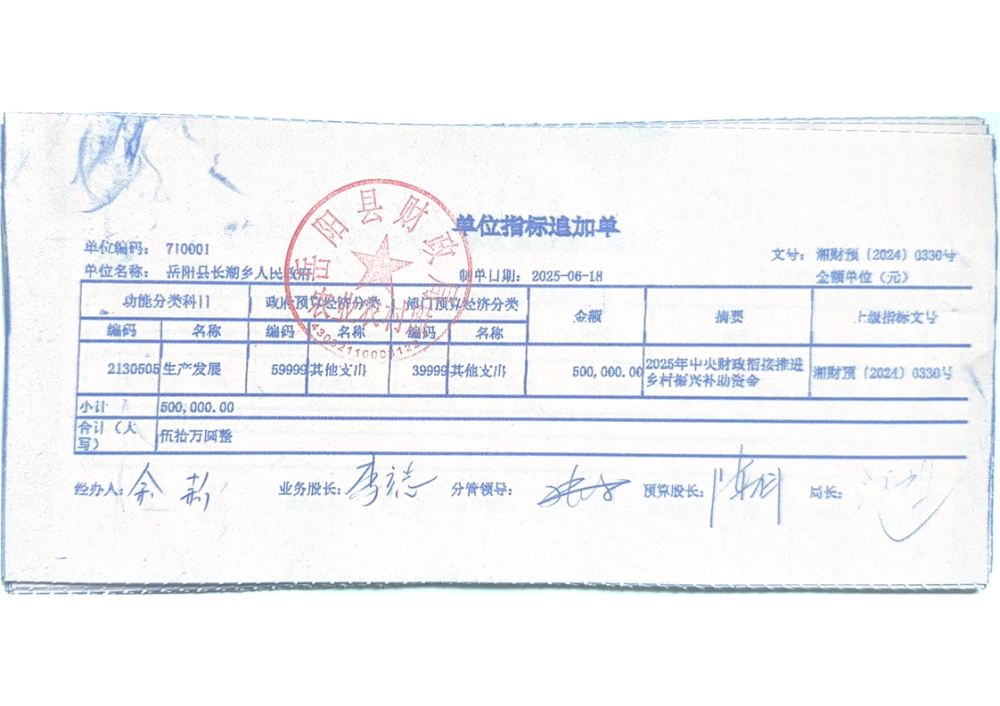 单位指标追加单
单位编码： 710001
文号： 湘财预〔2024〕0330号
单位名称： 岳阳县长湖乡人民政府
制单日期： 2025-06-18
金额单位（元）
功能分类科目 政府预算经济分类 部门预算经济分类 金额 摘要 上级指标文号
编码 名称 编码 名称 编码 名称
2130505 生产发展 59999 其他支出 39999 其他支出 500,000.00 2025年中央财政衔接推进 湘财预〔2024〕0330号
乡村振兴补助资金
小计 500,000.00
合计（大
写） 伍拾万圆整
经办人： 业务股长： 分管领导： 预算股长： 局长：
岳阳县财政局